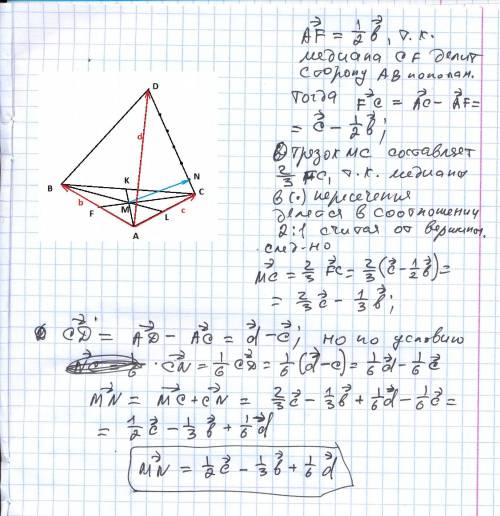 AF = 1/2 b, т.к.
медиана CF делит
сторону AB пополам.
Тогда FC = AC - AF =
= c - 1/2 b;
Отрезок MC составляет
2/3 FC, т.к. медианы
в (·) пересечения
делятся в соотношении
2:1 считая от вершины.
след-но
MC = 2/3 FC = 2/3 (c - 1/2 b) =
= 2/3 c - 1/3 b;
D
d
N
K
B
C
M
b
F
L
c
A
CD = AD - AC = d - c; но по условию
CN = 1/6 CD = 1/6 (d - c) = 1/6 d - 1/6 c
MN = MC + CN = 2/3 c - 1/3 b + 1/6 d - 1/6 c =
= 1/2 c - 1/3 b + 1/6 d
MN = 1/2 c - 1/3 b + 1/6 d